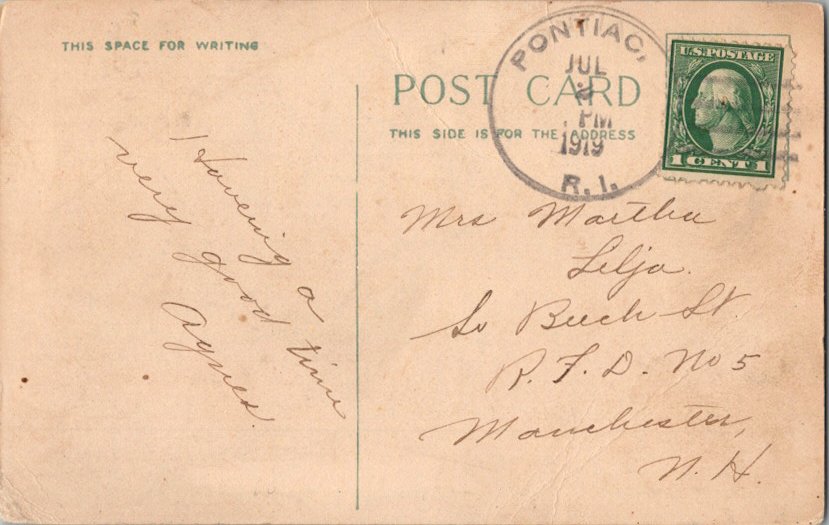 THIS SPACE FOR WRITING
Havering a
very good time
Agnes.
POST CARD
THIS SIDE IS FOR THE ADDRESS
PONTIAC,
JUL
2
PM
1919
R.I.
U.S. POSTAGE
1 CENT 1
Mrs Martha
Lilja.
So Beech St.
R.F.D. No 5
Manchester,
N.H.